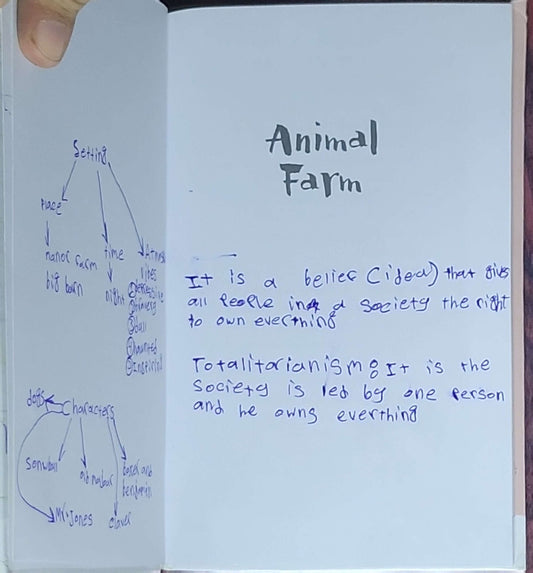 Setting
Place
manor farm
big barn
time
night
lines
① Depressive
③ dull
④ haunted
⑤ Inspirial
Characters
dogs
Sonwball
Mr. Jones
old
clover
boxer and
benjamin
Animal
Farm
It is a belief (idea) that gives
all people in a society the right
to own everthing
Totalitorianism: It is the
society is led by one person
and he owns everthing